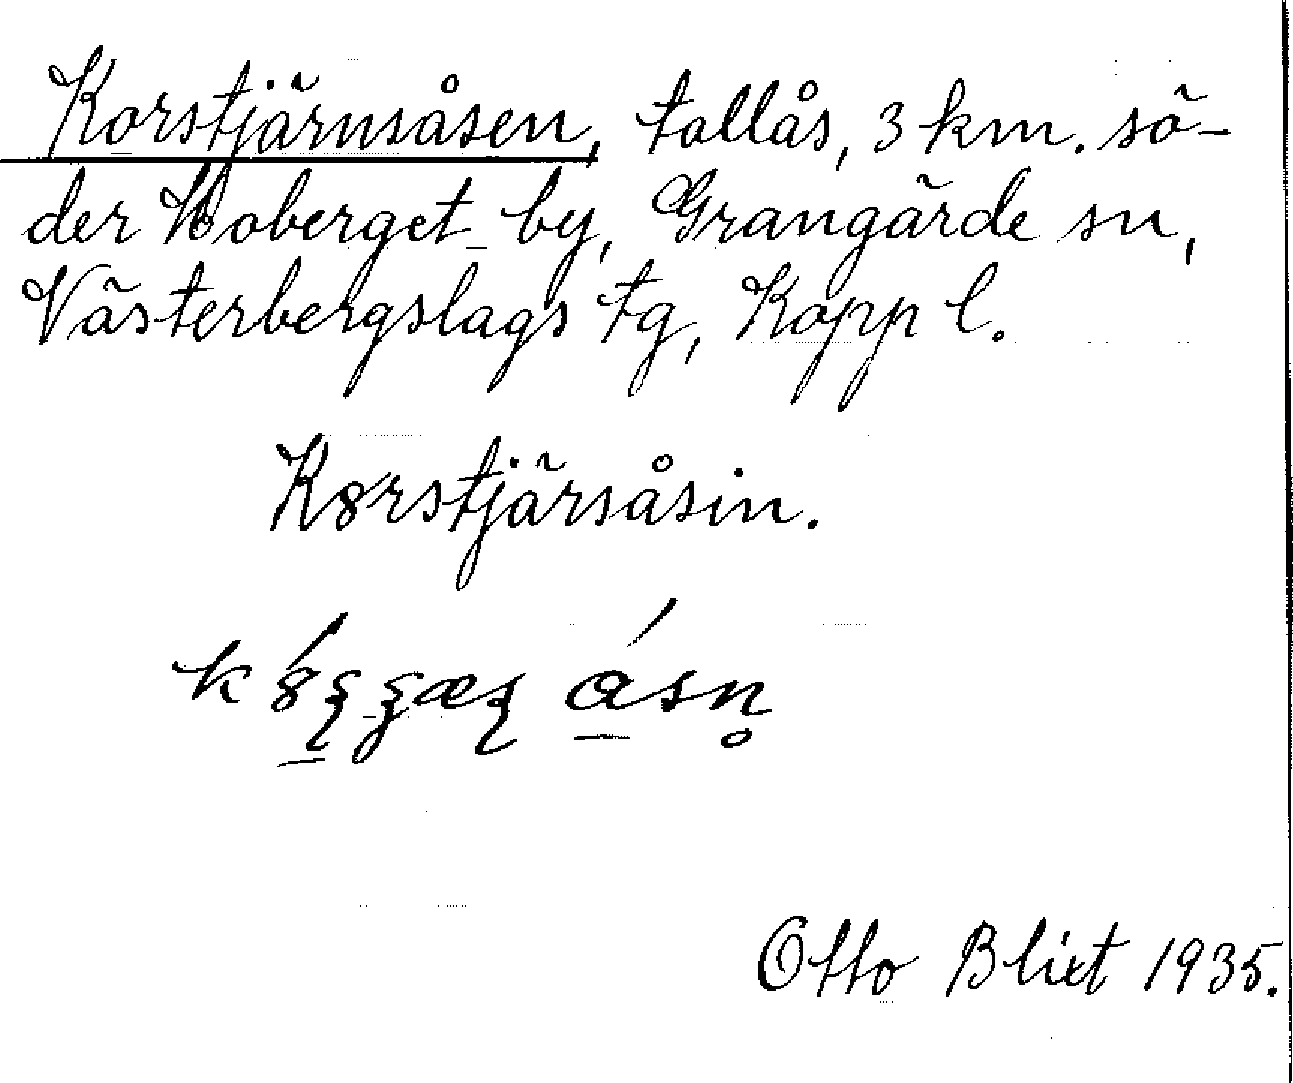 Korstjärnsåsen, tallås, 3 km. sö-
der Hoberget by, Grangärde sn,
Västerbergslags tg, Kopp l.
Kørstjärsåsin.
Otto Blixt 1935.